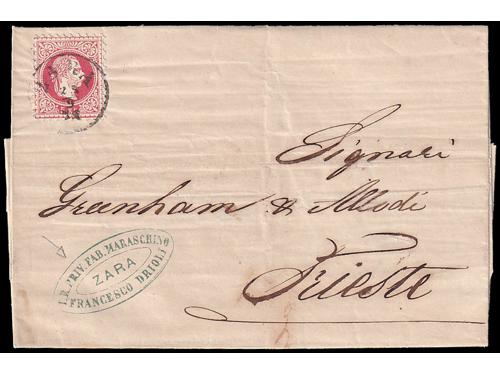 Signori
Greenham & Allodi
Trieste
I.R. PRIV. FAB. MARASCHINO
ZARA
FRANCESCO DRIOLI